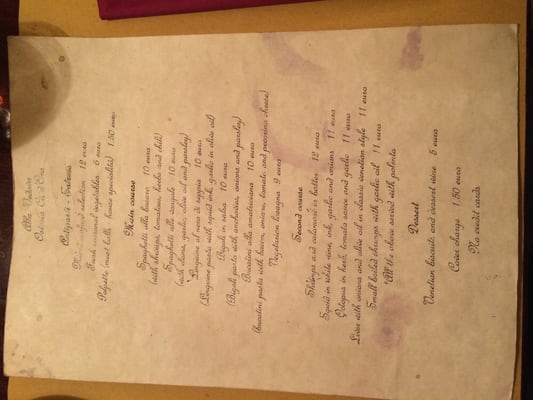 Alla Vedova
Osteria Ca d'Oro
Antipasto - Entrée
selection 12 euro
Fresh seasonal vegetables 6 euro
Polpette (meat balls house specialities) 1,50 euro
Main course
Spaghetti alla busara 10 euro
(with shrimps, tomatoes, herbs and chili)
Spaghetti alle vongole 10 euro
(with clams, garlic, olive oil and parsley)
Linguine al nero di seppia 10 euro
(Linguine pasta with squid ink, garlic in olive oil)
Bigoli in salsa 10 euro
(Bigoli pasta with anchovies, onions and parsley)
Bucatini alla amatriciana 10 euro
(Bucatini pasta with bacon, onions, tomato and pecorino cheese)
Vegetarian lasagna 9 euro
Second course
Shrimps and calamari in batter 12 euro
Squid in white wine, ink, garlic and onions 11 euro
Octopus in herb, tomato sauce and garlic 11 euro
Liver with onions and olive oil in classic venetian style 11 euro
Small boiled shrimps with garlic oil 11 euro
*All the above served with polenta
Dessert
Venetian biscuits and dessert wine 5 euro
Cover charge 1,50 euro
No credit cards